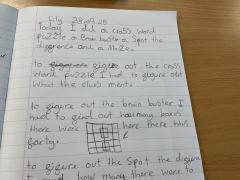 Lily 28.09.25
Today I did a cross word
puzzle a Brain buster a Spot the
diggerence and a Maze.
to gigure out the cross
word puzzle I had to gigure out
what the clues ment.
to gigure out the brain buster I
had to gind out how many boxes
there were here there was
forty.
to gigure out the Spot the
how many there were to